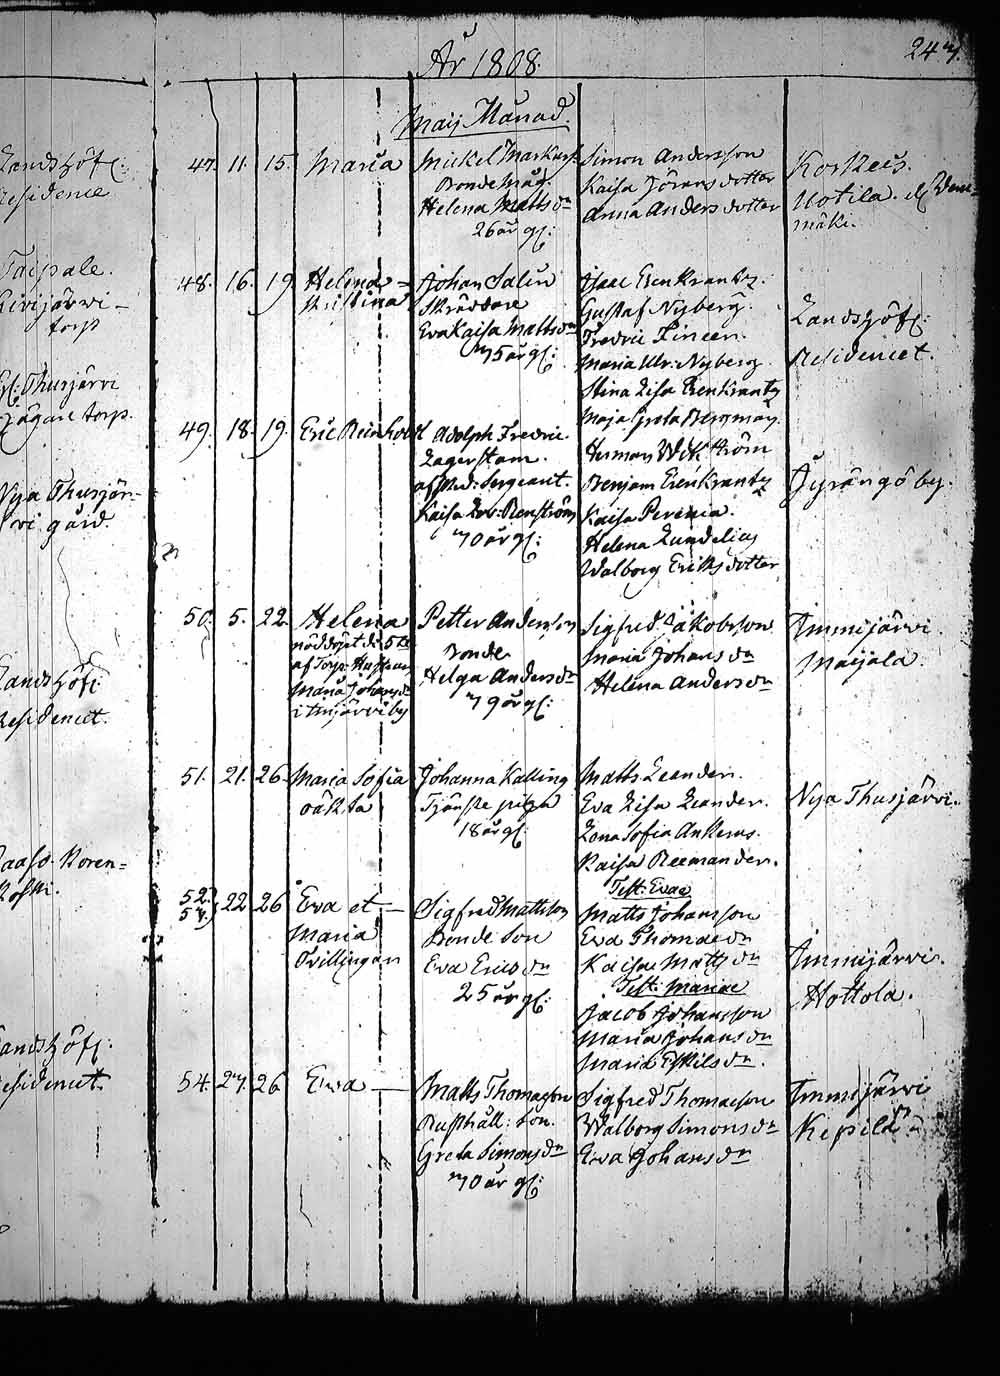 År 1808.
247.
Maij Månad.
Landshöf:
Residence
Taipale.
Kivijärvi
torp
gl: Thusjärvi
Jägare torp.
Nya Thusjär-
vi gård.
Landshöf:
Residencet.
Koren=
koski.
Landshöf:
Residencet.
47. 11. 15. Maria
Mickel Markuss:
Bonde Måg.
Helena Matts dr
26 år gl:
Simon Andersson
Kaisa Jörans dotter
Anna Anders dotter
Korkeis.
Uotila.
mäki.
48. 16. 19. Helena
Kristina
Johan Salin
Skräddare
Eva Kaisa Matts dr
Isaac Erenkrantz.
Gustaf Nyberg.
Fredric Fineen.
Maria Ulr: Nyberg
Stina Lisa Erenkrantz
Maja Greta Bergman.
Landshöf:
Residencet.
49. 18. 19. Eric Reinholdt
Adolph Fredric
Lagerstam.
afsked: Sergeant.
Kaisa Lov: Renström
Herman Wikström
Benjam Erenkrantz
Kaisa
Helena Lundelius
Walborg Eriks dotter
Jyrängö by.
50. 5. 22. Helena
nöddöpt d: 5te
af Torp: Hustrun
Maria Johans dr
i Imjärvi by
Petter Andersson
Bonde
Helga Anders dr
Sigfred Jakobsson
Maria Johans dr
Helena Anders dr
Immijärvi
Maijala.
51. 21. 26. Maria Sofia
oäkta
Johanna Kalling
Tjänste piga
18 år gl:
Matts Leander.
Eva Lisa Leander.
Lena Sofia Ankerus.
Kaisa Reemander.
Nya Thusjärvi.
52.
53. 22 26 Eva et
Maria
Tvillingar
Sigfred Mattsson
Bonde Son
Eva Erics dr
25 år gl:
Test: Evae
Matts Johansson
Eva Thomae dr
Kaisa Matts dr
Test: Mariae
Jacob Johansson
Maria Johans dr
Maria Eskils dr.
Immijärvi.
Hottola.
54. 27. 26 Eva
Matts Thomasson
Rusthåll: Son.
Greta Simons dr
Sigfred Thomasson
Walborg Simons dr
Eva Johans dr
Immijärvi
Kipilä